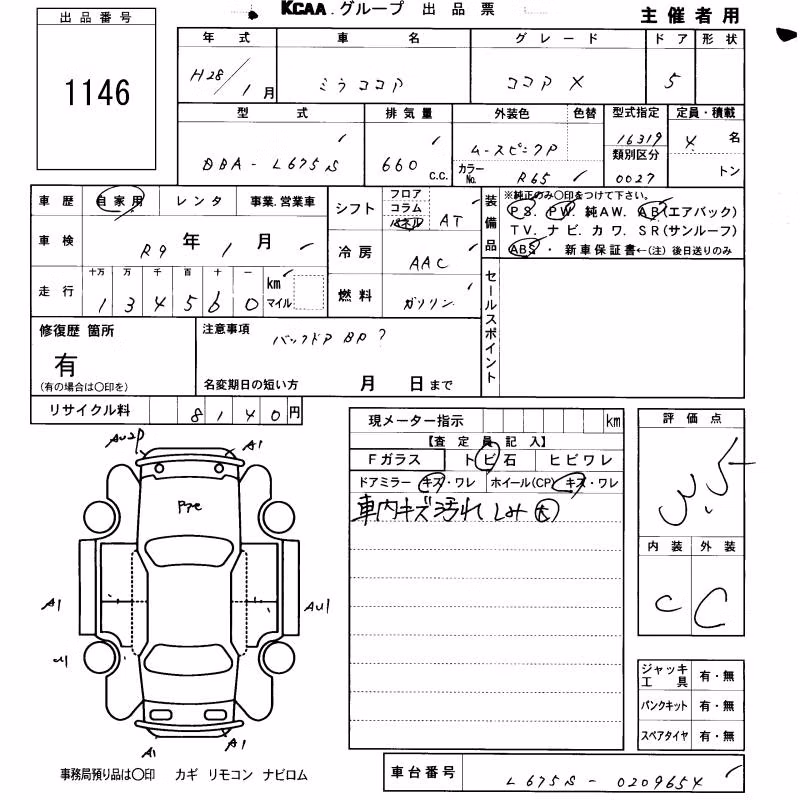 KCAA.グループ 出品票
主催者用
出品番号
1146
年式 車名 グレード ドア 形状
H28/1月 ミラココア ココアX 5
型式 排気量 外装色 色替 型式指定 定員・積載
DBA-L675S 660 C.C. ムースピンクP 16319 4名
カラーNo. R65 類別区分 0027 トン
車歴 自家用 レンタ 事業.営業車
車検 R9年1月
走行 十万 万 千 百 十 一
134560 km マイル
シフト フロア コラム パネル AT
冷房 AAC
燃料 ガソリン
装備品 ※純正のみ〇印をつけて下さい。
PS. PW. 純AW. AB(エアバック)
TV. ナビ. カワ. SR(サンルーフ)
ABS・新車保証書←(注)後日送りのみ
セールスポイント
修復歴 箇所
有
(有の場合は〇印を)
注意事項
バックドアBP?
名変期日の短い方 月 日まで
リサイクル料 8140円
現メーター指示 km
【査定員記入】
Fガラス トビ石 ヒビワレ
ドアミラー キズ・ワレ ホイール(CP) キズ・ワレ
車内キズ汚れ しみ大
評価点
3.5
内装 外装
C C
AU2P A1
Pre
A1 AU1
A1 A1
ジャッキ工具 有・無
パンクキット 有・無
スペアタイヤ 有・無
事務局預り品は〇印 カギ リモコン ナビロム
車台番号 L675S-0209654